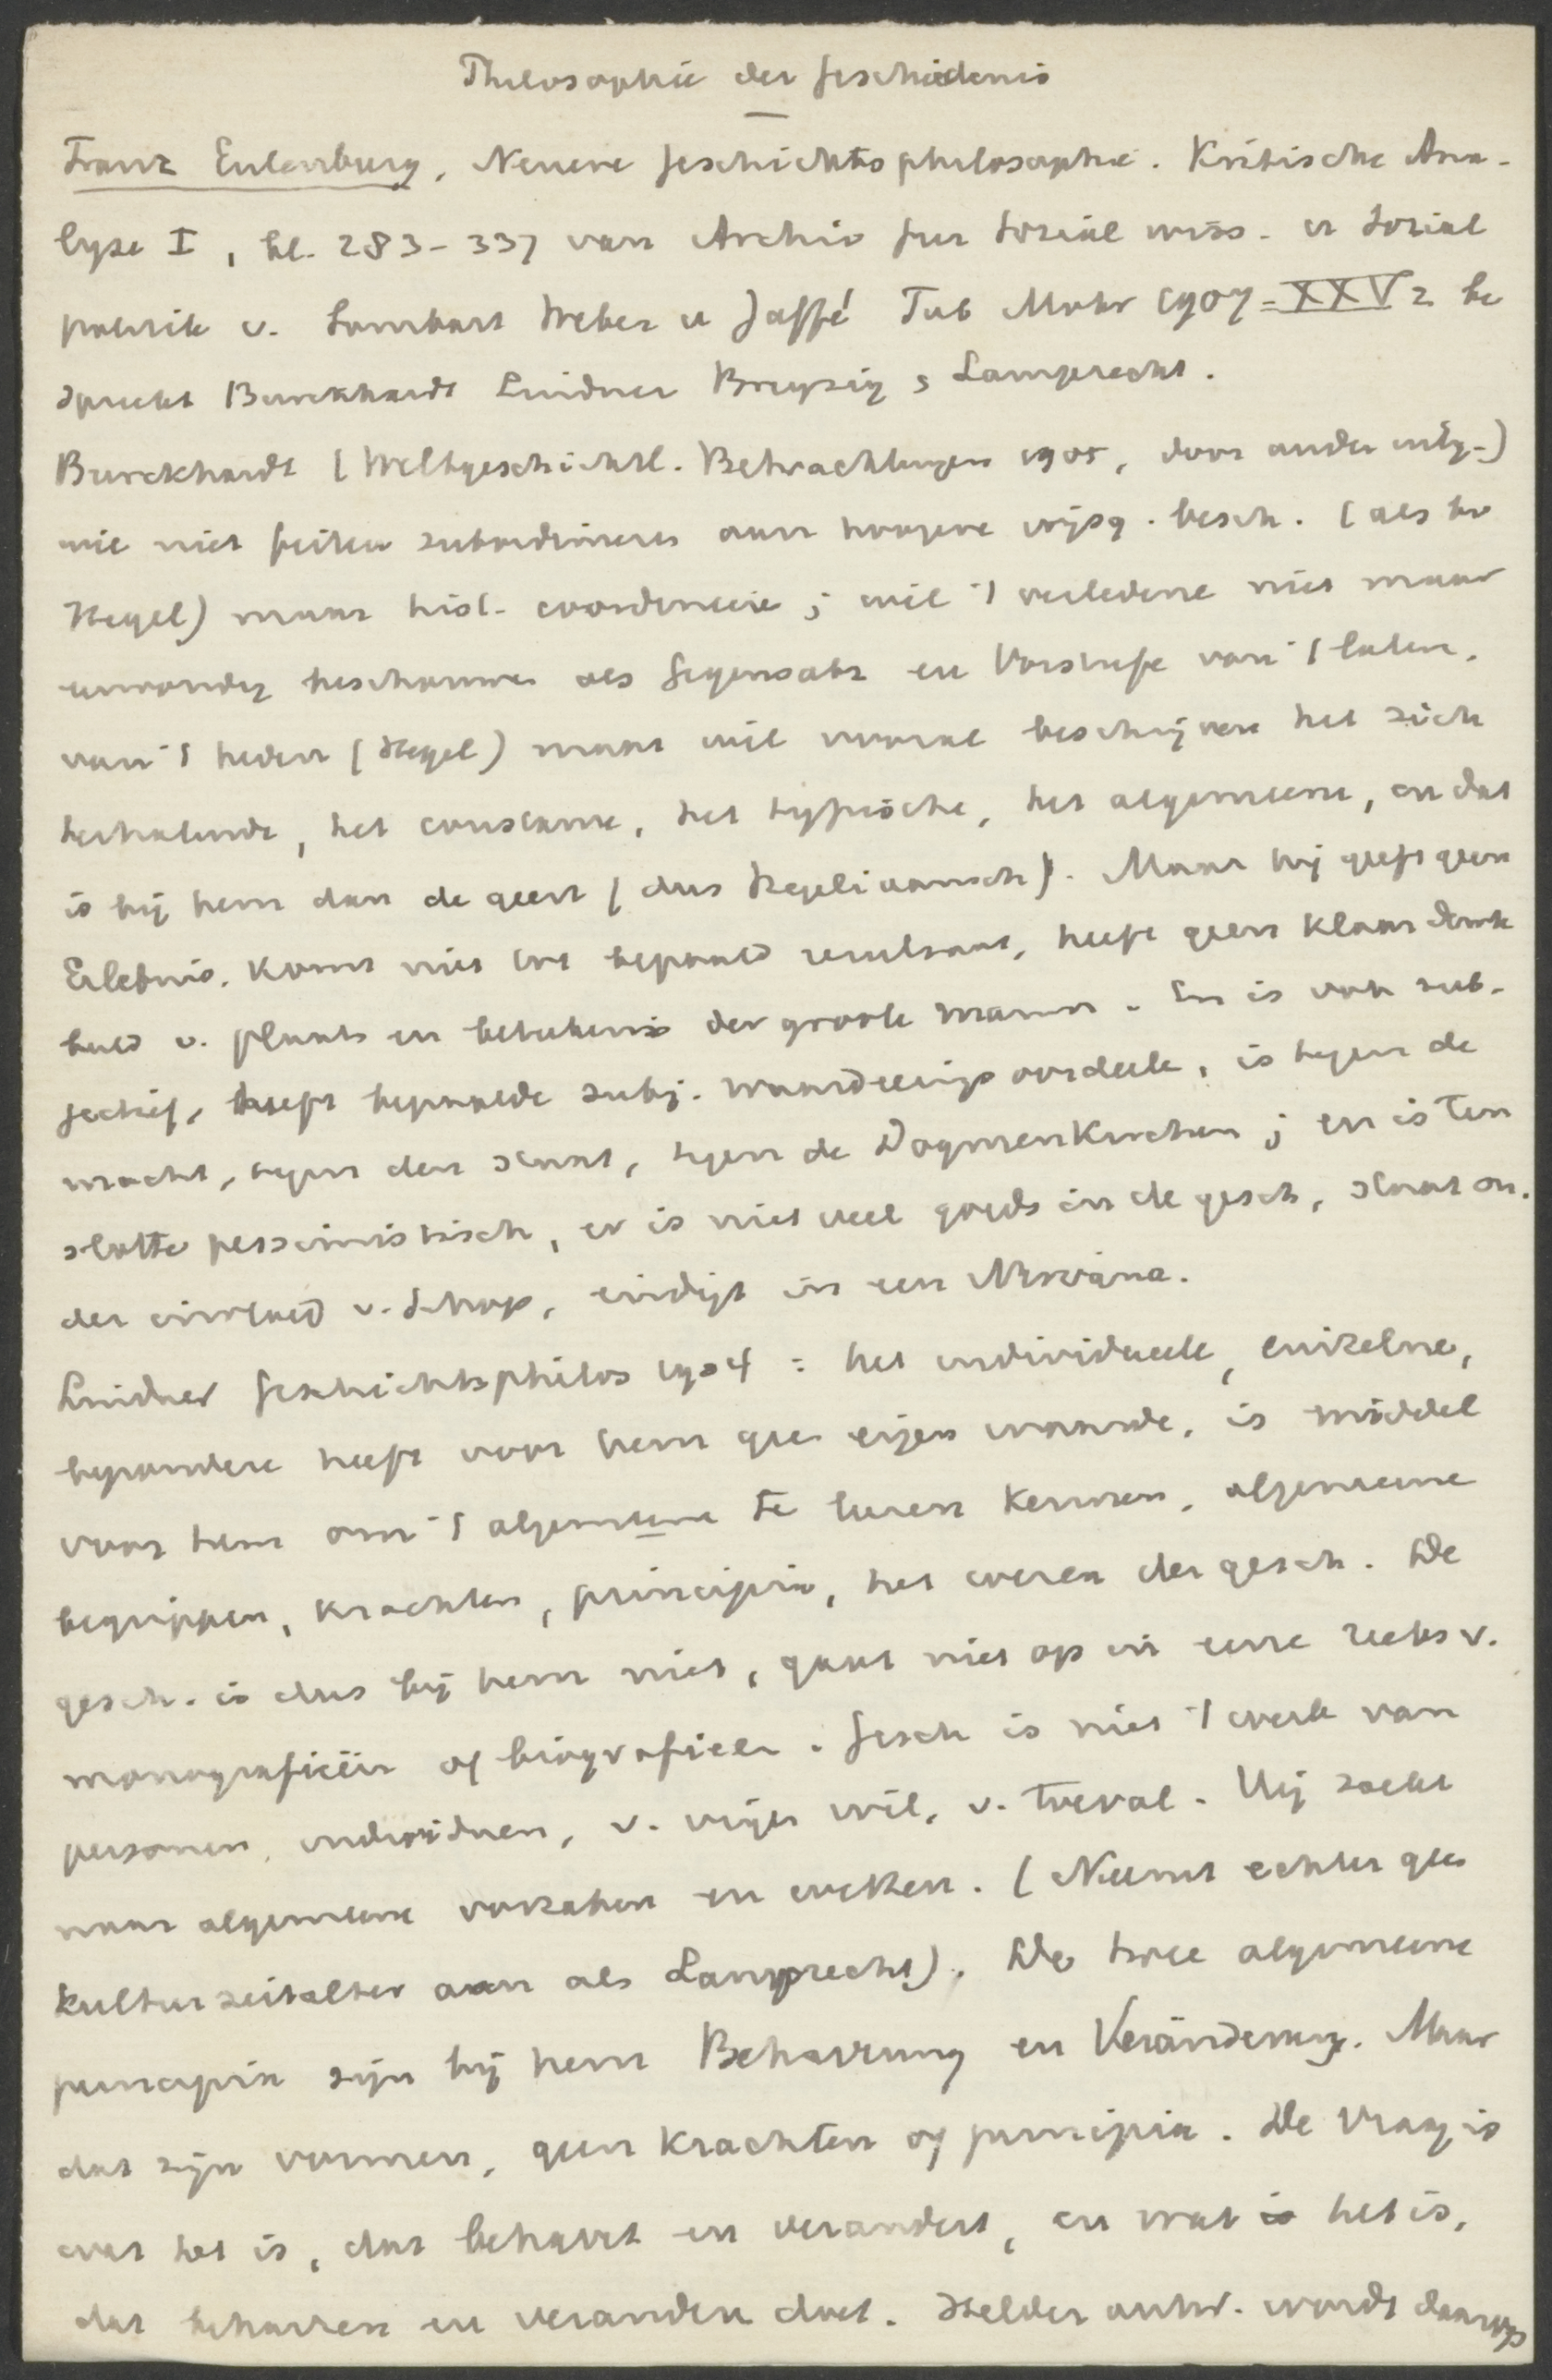 Philosophie der Geschiedenis
Franz Eulenburg, Neuere Geschichtsphilosophie. Kritische Ana-
lyse I, bl. 283-337 van Archiv fur Sozial wiss. u Sozial
politik v. Sombart Weber u Jaffé Tub Mohr 1907 = XXV 2 be
spreekt Burckhardt Lindner Breysig & Lamprecht.
Burckhardt (Weltgeschichtl. Betrachtungen 1905, door ander uitg.)
wil niet feiten subordineeren aan hoogere wijsg. besch. (als bv
Hegel) maar hist. coordineeren; wil 't verledene niet maar
eenvoudig beschouwen als Gegensatz en Vorstufe van 't laten.
van 't heden (Hegel) maar wil vooral beschrijven het zich
herhalende, het constante, het typische, het algemeene, en dat
is bij hem dan de geest (dus Hegeliaansch). Maar hij geeft geen
Erlebnis. Komt niet tot bepaald resultaat, heeft geen klaar denk
beeld v. plaats en beteekenis der groote mannen. En is ook sub-
jectief, heeft bepaalde subj. waardeerings oordeele, is tegen de
macht, tegen den staat, tegen de Dogmenkirchen; en is ten
slotte pessimistisch, er is niet veel goeds in de gesch, staat on-
der invloed v. Schop, eindigt in een Nirvâna.
Lindner Geschichtsphilos 1904 : het individueele, enkelne,
byzondere heeft voor hem geen eigen waarde, is middel
voor hem om 't algemeene te leeren kennen, algemeene
begrippen, krachten, principia, het wezen der gesch. De
gesch. is dus bij hem niet, gaat niet op in eene reeks v.
monografieën of biografieen. Gesch is niet 't werk van
personen, individuen, v. vrijen wil, v. toeval. Hij zoekt
naar algemeene oorzaken en wetten. (Neemt echter geen
Kulturzeitalter aan als Lamprecht). De twee algemeene
principia zijn bij hem Beharrung en Veränderung. Maar
dat zijn vormen, geen krachten of principia. De Vraag is
wat het is, dat behart en verandert, en wat het is,
dat beharren en veranderen doet. Helder antw. wordt daarop